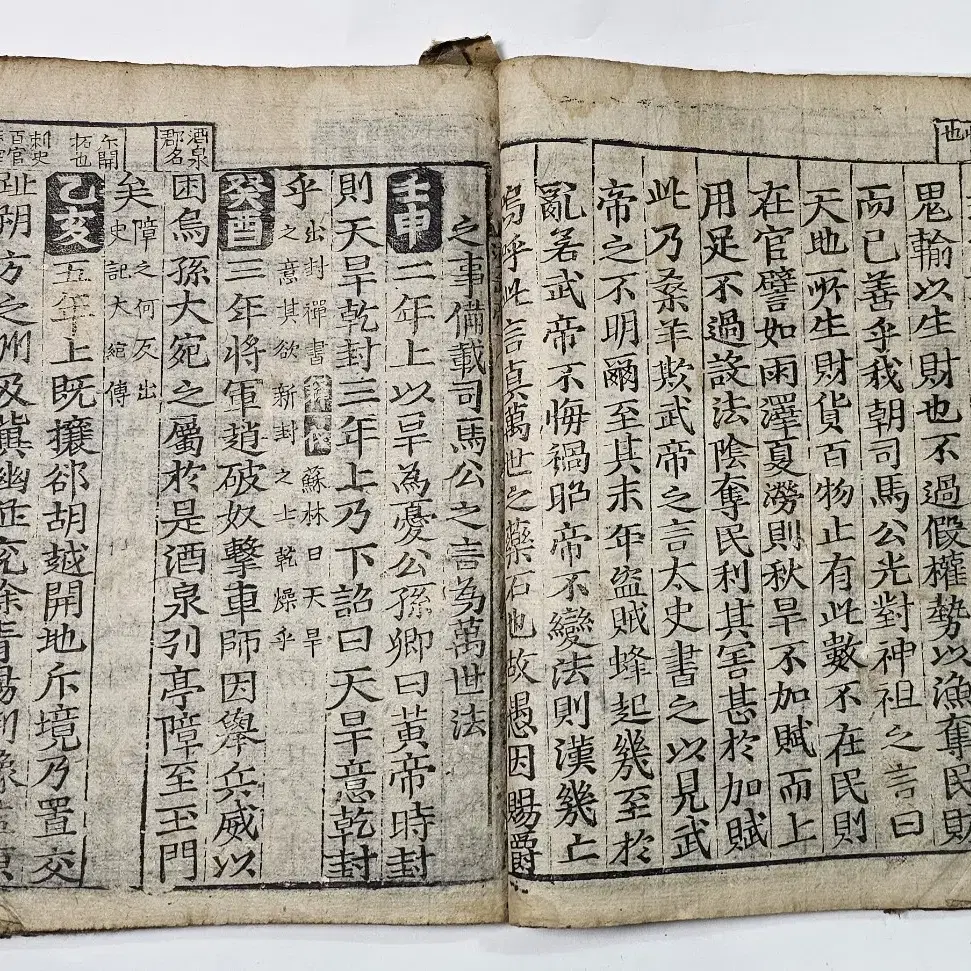 輸以生財也不過假權勢以漁奪民財
也
而已善乎我朝司馬公光對神祖之言曰
天地所生財貨百物止有此數不在民則
在官譬如雨澤夏澇則秋旱不加賦而上
用足不過設法陰奪民利其害甚於加賦
此乃桑羊欺武帝之言太史書之以見武
帝之不明爾至其末年盜賊蜂起幾至於
亂若武帝不悔禍昭帝不變法則漢幾亡
嗚呼此言真萬世之藥石也故愚因賜爵
之事備載司馬公之言為萬世法
壬申二年上以旱為憂公孫卿曰黃帝時封
則天旱乾封三年上乃下詔曰天旱意乾封
乎
出封禪書蘇林曰天旱
之意其欲新封之土乾燥乎
癸酉三年將軍趙破奴擊車師因舉兵威以
酒泉
郡名
困烏孫大宛之屬於是酒泉列亭障至玉門
矣
障之何反出
史記大宛傳
斥開
拓也
乙亥五年上既攘郤胡越開地斥境乃置交
刺史
百官
趾朔方之州及冀幽並兗徐青揚荊豫益涼